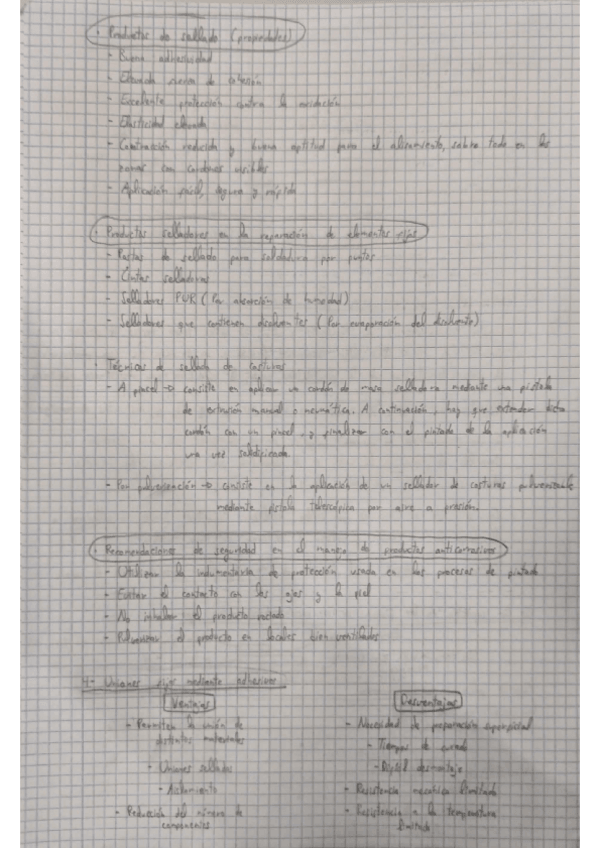 · Productos de sellado (propiedades)
- Buena adhesividad
- Elevada fuerza de cohesión
- Excelente protección contra la oxidación
- Elasticidad elevada
- Contracción reducida y buena aptitud para el alisamiento, sobre todo en las
zonas con cordones visibles
- Aplicación fácil, segura y rápida
· Productos selladores en la reparación de elementos fijos
- Pastas de sellado para soldadura por puntos
- Cintas selladoras
- Selladores PUR (Por absorción de humedad)
- Selladores que contienen disolventes (Por evaporación del disolvente)
· Técnicas de sellado de costuras
- A pincel → consiste en aplicar un cordón de masa selladora mediante una pistola
de extrusión manual o neumática. A continuación, hay que extender dicho
cordón con un pincel, y finalizar con el pintado de la aplicación
una vez solidificada.
- Por pulverización → consiste en la aplicación de un sellador de costuras pulverizable
mediante pistola telescópica por aire a presión.
· Recomendaciones de seguridad en el manejo de productos anticorrosivos
- Utilizar la indumentaria de protección usada en los procesos de pintado
- Evitar el contacto con los ojos y la piel
- No inhalar el producto
- Pulverizar el producto en locales bien ventilados
4- Uniones fijas mediante adhesivos
Ventajas
- Permiten la unión de
distintos materiales
- Uniones selladas
- Aislamiento
- Reducción del número de
componentes
Desventajas
- Necesidad de preparación superficial
- Tiempos de curado
- Difícil desmontaje
- Resistencia mecánica limitada
- Resistencia a la temperatura
limitada